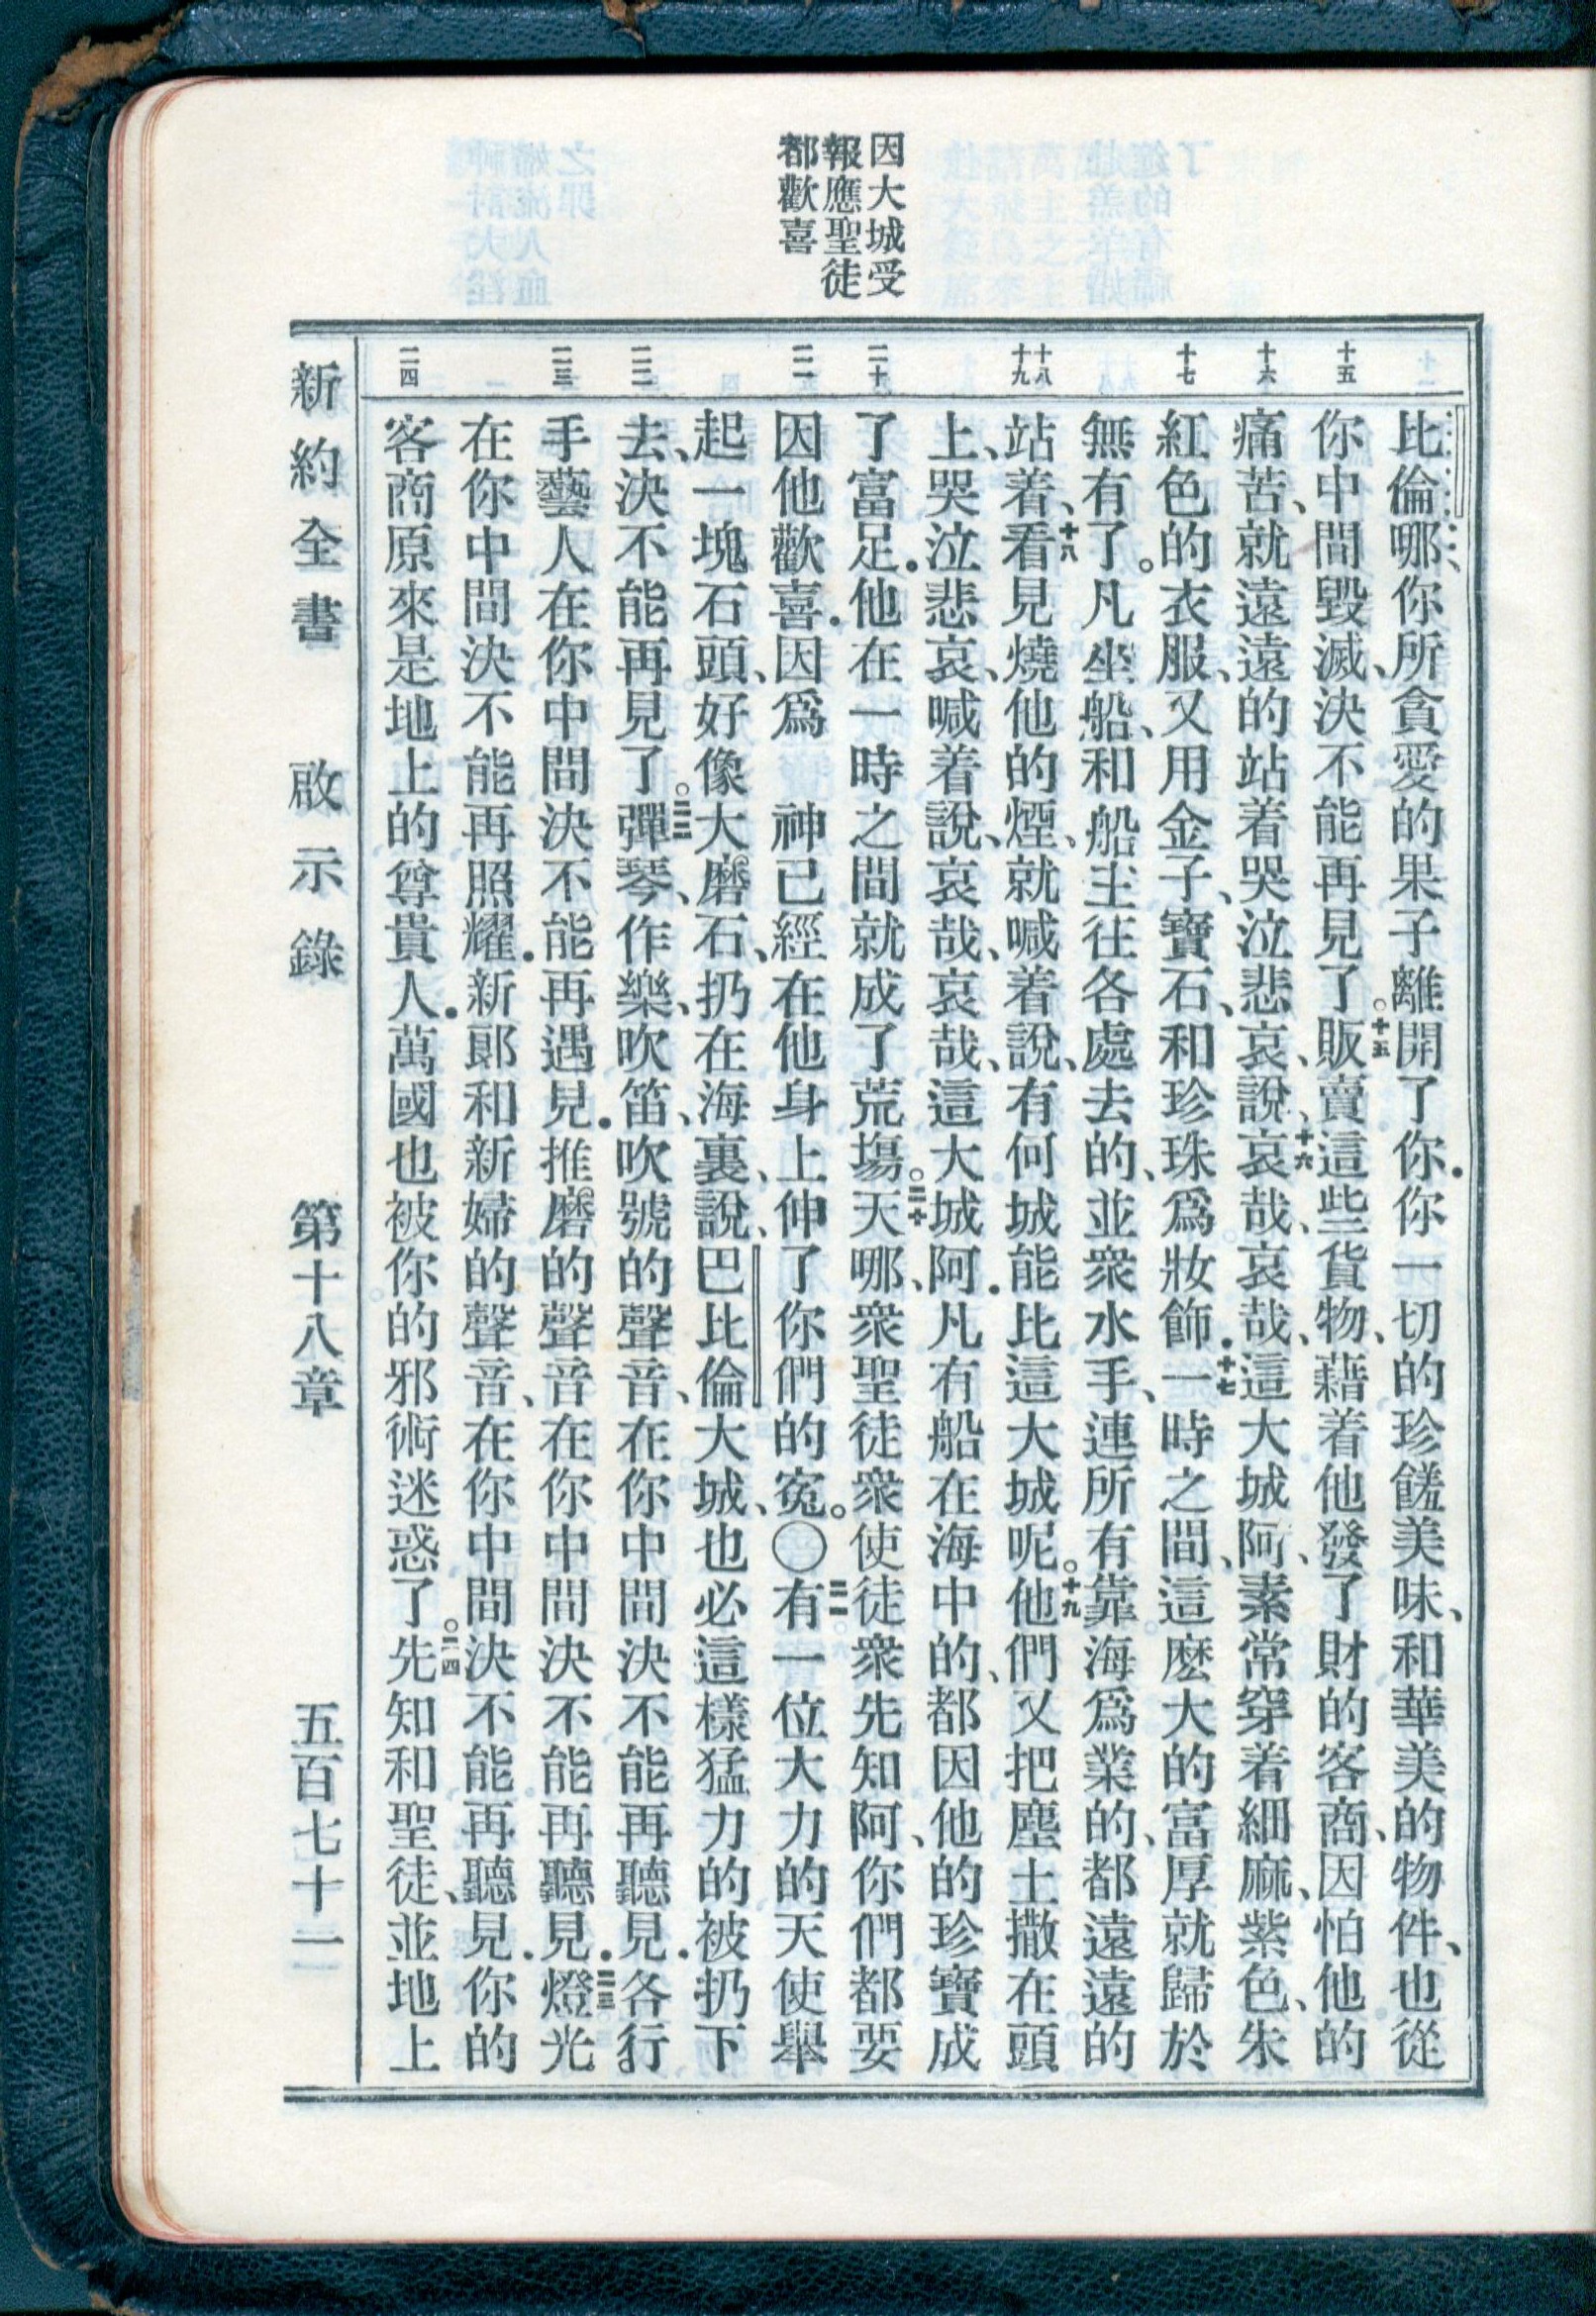 因大城受
報應聖徒
都歡喜
十五
十六
十七
十八
十九
二十
二一
二二
二三
二四
比倫哪、你所貪愛的果子離開了你．你一切的珍饈美味、和華美的物件、也從
你中間毀滅、決不能再見了。十五販賣這些貨物、藉着他發了財的客商、因怕他的
痛苦、就遠遠的站着哭泣悲哀、說、十六哀哉、哀哉、這大城阿、素常穿着細麻、紫色、朱
紅色的衣服、又用金子、寶石、和珍珠爲妝飾．十七一時之間、這麽大的富厚就歸於
無有了。凡坐船、和船主往各處去的、並衆水手、連所有靠海爲業的、都遠遠的
站着、十八看見燒他的煙、就喊着說、有何城能比這大城呢。十九他們又把塵土撒在頭
上、哭泣悲哀、喊着說、哀哉、哀哉、這大城阿．凡有船在海中的、都因他的珍寶成
了富足．他在一時之間就成了荒塲。二十天哪、衆聖徒衆使徒衆先知阿、你們都要
因他歡喜．因爲　神已經在他身上伸了你們的寃。〇二一有一位大力的天使舉
起一塊石頭、好像大磨石、扔在海裏、說、巴比倫大城、也必這樣猛力的被扔下
去、決不能再見了。二二彈琴、作樂、吹笛、吹號的聲音、在你中間決不能再聽見．各行
手藝人在你中間決不能再遇見．推磨的聲音在你中間決不能再聽見．二三燈光
在你中間決不能再照耀．新郞和新婦的聲音、在你中間決不能再聽見．你的
客商原來是地上的尊貴人．萬國也被你的邪術迷惑了。二四先知和聖徒、並地上
新約全書　啟示錄　第十八章　五百七十二